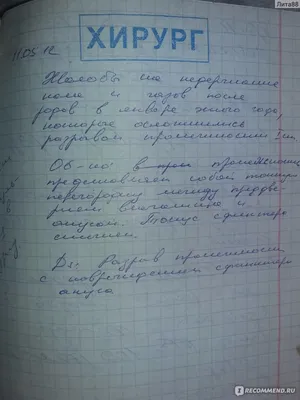 Лита88
11.05.12
ХИРУРГ
Жалобы на недержание
кала и газов после
родов в январе этого года,
которые осложнились
разрывом промежности
Об-но: в промежности
представляет собой тонкую
перегородку между преддве-
рием влагалища и
анусом. Тонус сфинктера
снижен
Ds: Разрыв промежности
с повреждением сфинктера
ануса
RECOMMEND.RU